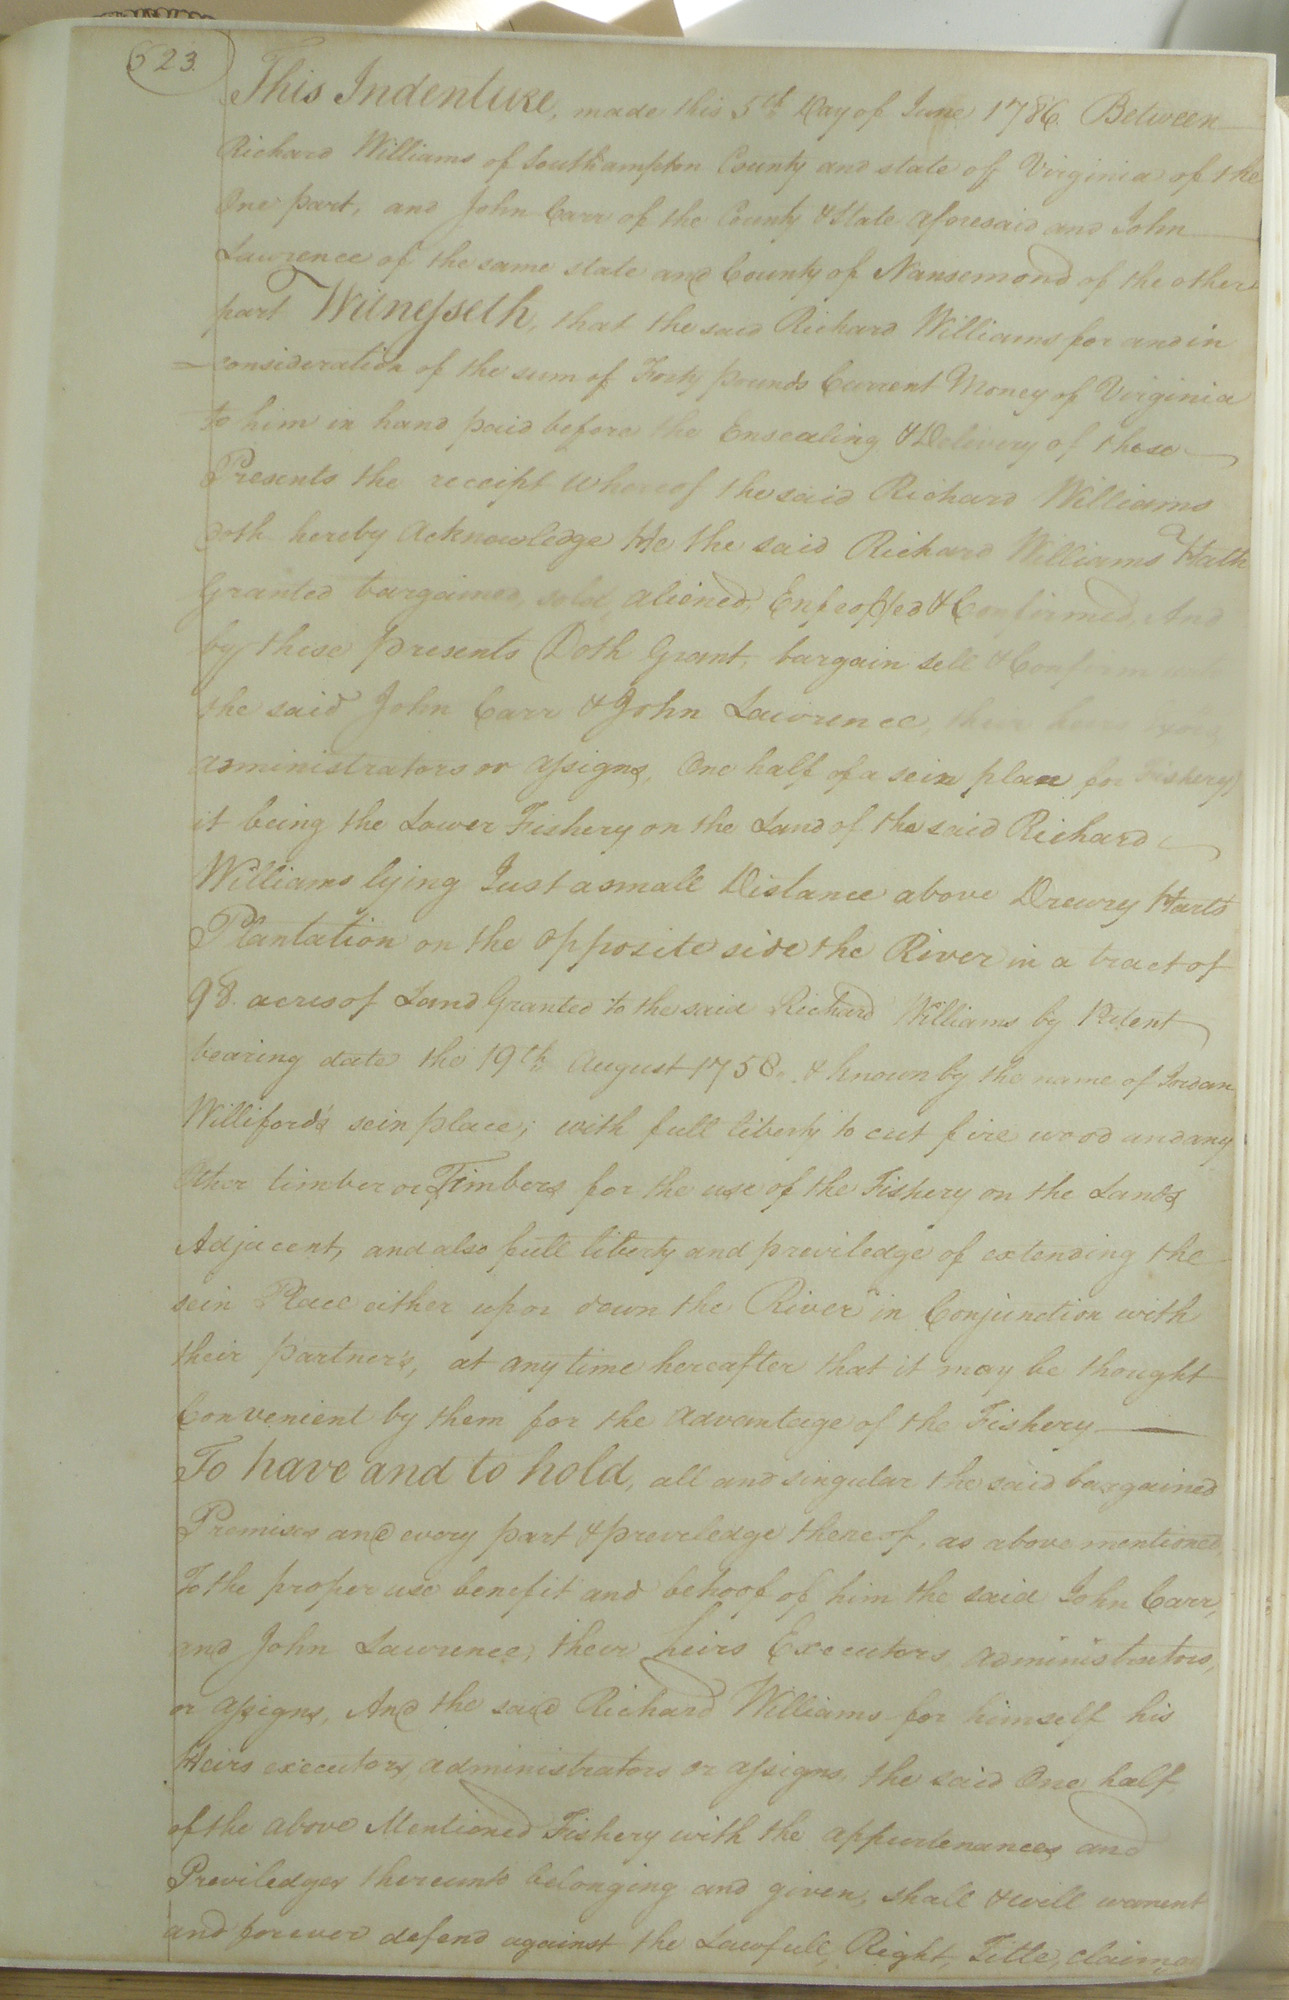 523.
This Indenture, made this 5th Day of June 1786. Between
Richard Williams of Southampton County and state of Virginia of the
One part, and John Carr of the County & State aforesaid and John
Lawrence of the same state and County of Nansemond of the other
part Witnesseth, that the said Richard Williams for and in
=consideration of the sum of Forty pounds Current Money of Virginia
to him in hand paid before the Ensealing & Delivery of these
Presents the receipt whereof the said Richard Williams
doth hereby Acknowledge He the said Richard Williams Hath
Granted bargained, sold, aliened, Enfeoffed & Confirmed, And
by these presents Doth Grant, bargain sell & Confirm unto
the said John Carr & John Lawrence, their heirs
administrators or assigns, One half of a sein place for Fishery
it being the Lower Fishery on the Land of the said Richard
Williams lying Just a small Distance above Drewry Harts
Plantation on the opposite side the River in a tract of
98 acres of Land Granted to the said Richard Williams by Patent
bearing date the 19th August 1758. & known by the name of Jordan
Williford's sein place; with full liberty to cut fire wood and any
Other timber or Timbers for the use of the Fishery on the Lands
Adjacent, and also full liberty and previledge of extending the
sein Place either up or down the River in Conjunction with
their partner's, at any time hereafter that it may be thought
Convenient by them for the advantage of the Fishery
To have and to hold, all and singular the said bargained
Premises and every part & previledge thereof, as above mentioned,
To the proper use benefit and behoof of him the said John Carr,
and John Lawrence, their heirs Executors administrators,
or assigns, And the said Richard Williams for himself his
Heirs executors administrators or assigns, the said One half
of the above Mentioned Fishery with the appurtenances and
Previledges thereunto belonging and given, shall & will warrent
and forever defend against the Lawfull, Right, Title, claim